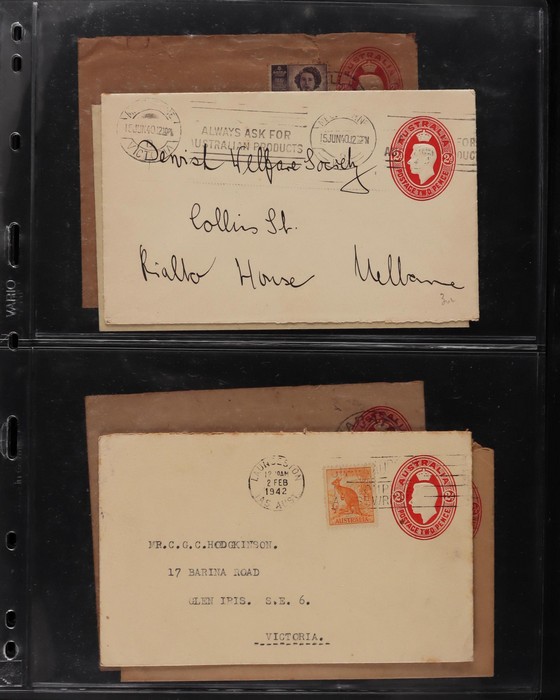 VARIO
15JUN40.12
15JUN40.12
ALWAYS ASK FOR
AUSTRALIAN PRODUCTS
AUSTRALIA
2D
POSTAGE TWO PENCE
Jewish Welfare Society
Collins St.
Rialto House Melbourne
LAUNCESTON
2 FEB
1942
TAS. AUST.
AUSTRALIA
AUSTRALIA
2D
POSTAGE TWO PENCE
MR.C.G.C.HODGKINSON.
17 BARINA ROAD
GLEN IRIS. S.E. 6.
VICTORIA.